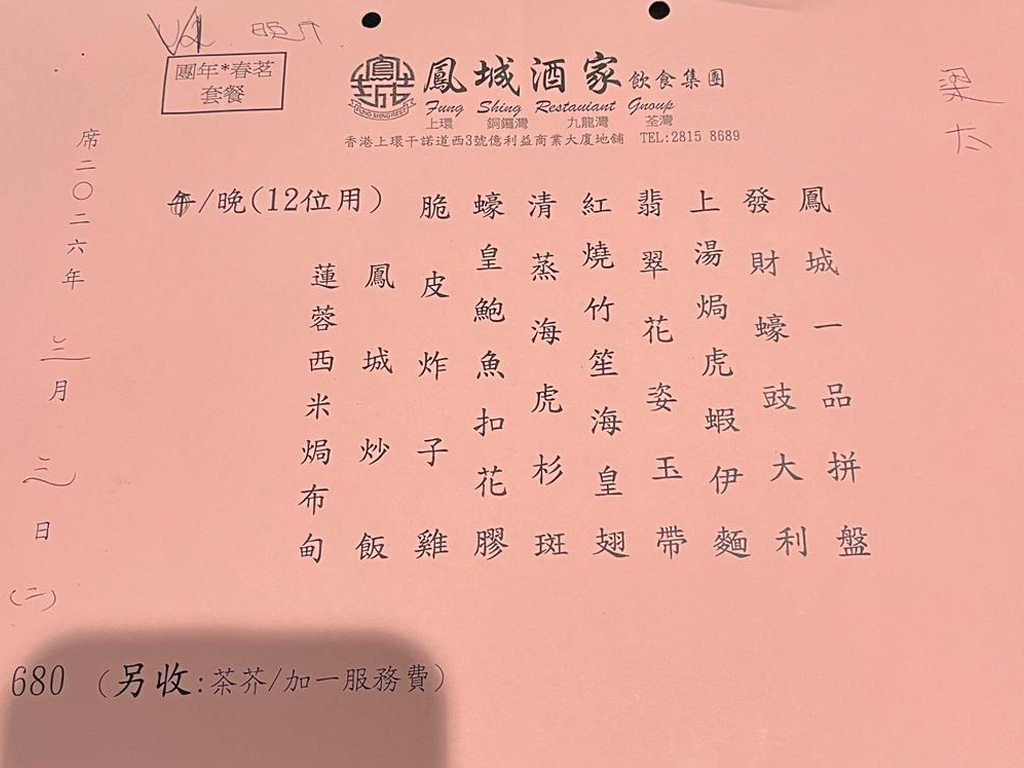 團年*春茗
套餐
鳳城酒家飲食集團
Fung Shing Restauiant Gnoup
上環 銅鑼灣 九龍灣 荃灣
香港上環干諾道西3號億利益商業大廈地舖 TEL:2815 8689
梁太
/晚(12位用)
鳳城一品拼盤
發財蠔豉大利
上湯焗虎蝦伊麵
翡翠花姿玉帶
紅燒竹笙海皇翅
清蒸海虎杉斑
蠔皇鮑魚扣花膠
脆皮炸子雞
鳳城炒飯
蓮蓉西米焗布甸
席二〇二六年三月三日(二)
680 (另收:茶芥/加一服務費)